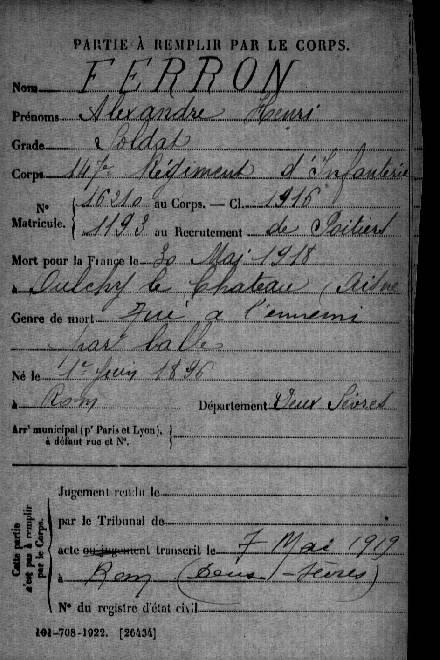 PARTIE À REMPLIR PAR LE CORPS.
Nom FERRON
Prénoms Alexandre Henri
Grade Soldat
Corps 147e Régiment d'Infanterie
N° Matricule. { 16210 au Corps. — Cl. 1916
1193 au Recrutement de Poitiers
Mort pour la France le 30 Mai 1918
à Oulchy le Chateau (Aisne
Genre de mort Tué à l'ennemi
par balles
Né le 1er Juin 1896
à Rom Département Deux Sèvres
Arrt municipal (pr Paris et Lyon), à défaut rue et N°. {
Cette partie n'est pas à remplir par le Corps. {
Jugement rendu le
par le Tribunal de
acte ou jugement transcrit le 7 Mai 1919
à Rom (Deux-Sèvres)
N° du registre d'état civil
101-708-1922. [26434]